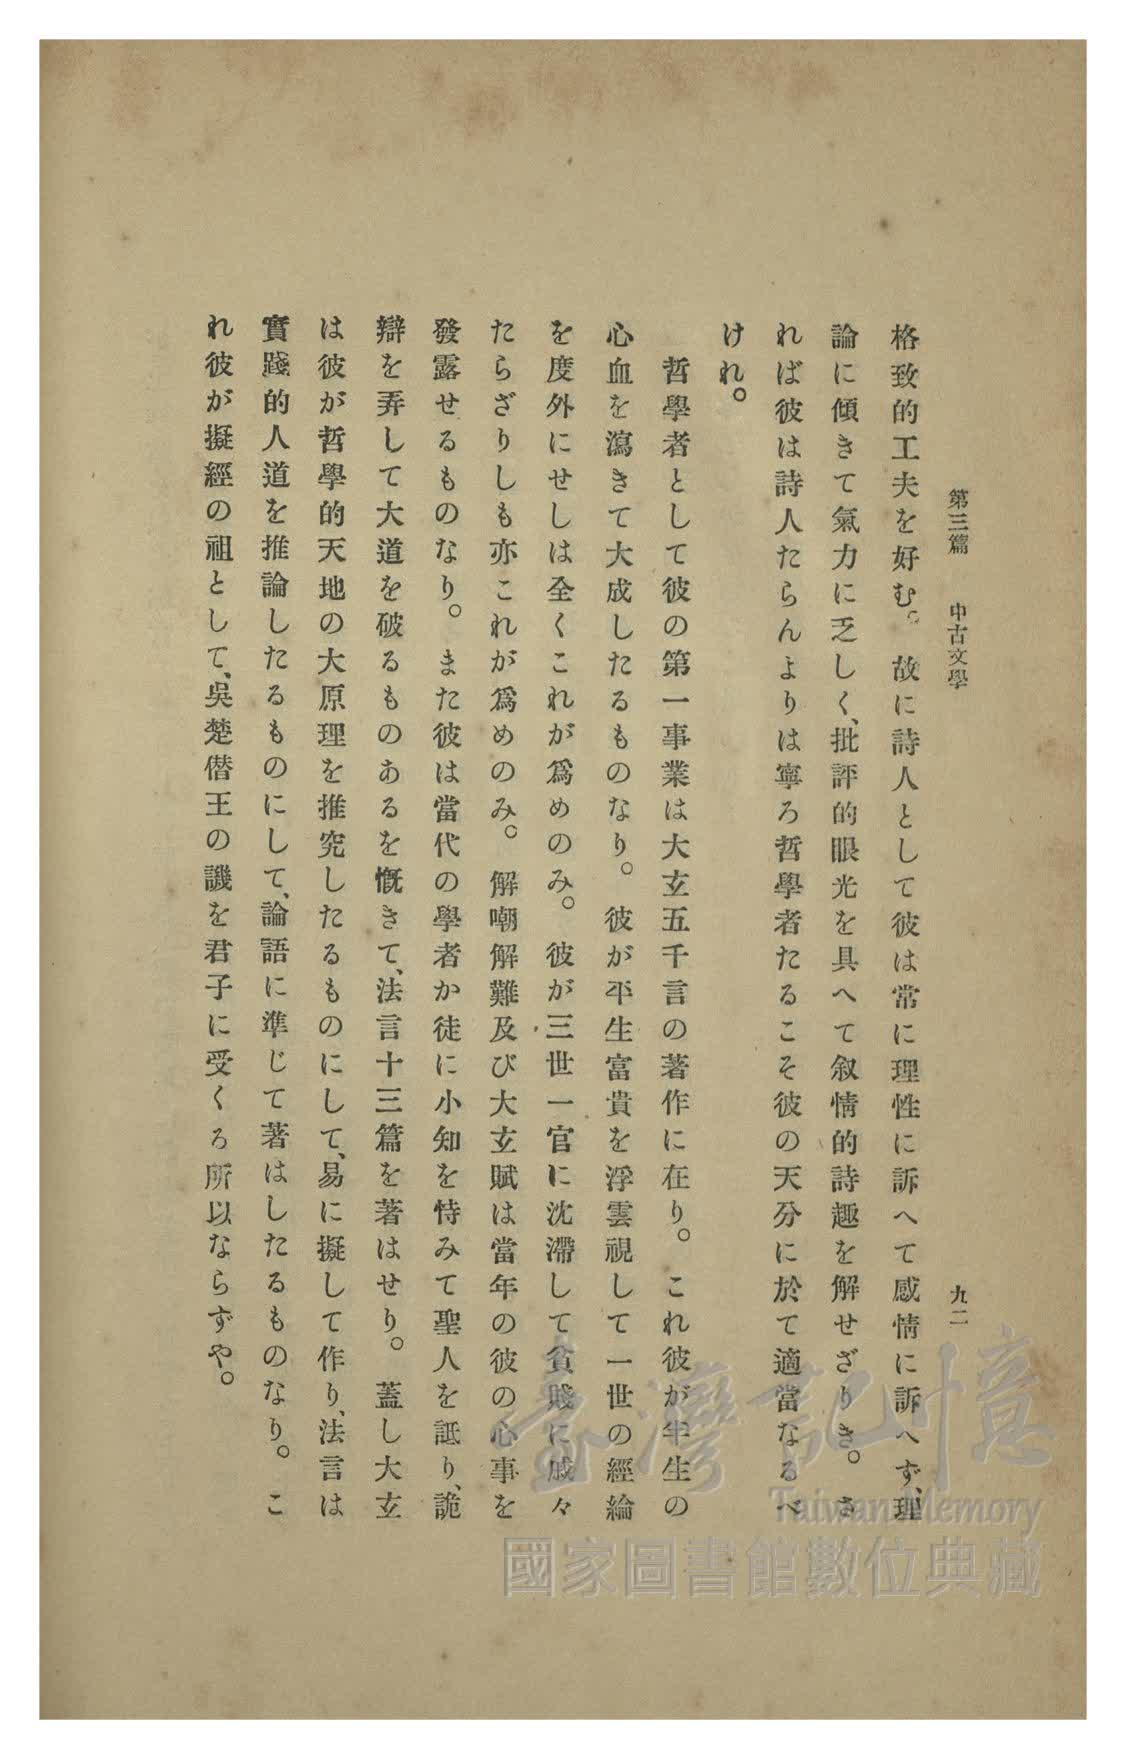 第三篇　中古文學　九二
格致的工夫を好む。故に詩人として彼は常に理性に訴へて感情に訴へず、理
論に傾きて氣力に乏しく、批評的眼光を具へて叙情的詩趣を解せざりき。さ
れば彼は詩人たらんよりは寧ろ哲學者たるこそ彼の天分に於て適當なるべ
けれ。
哲學者として彼の第一事業は大玄五千言の著作に在り。これ彼が半生の
心血を瀉きて大成したるものなり。彼が平生富貴を浮雲視して一世の經綸
を度外にせしは全くこれが爲めのみ。彼が三世一官に沈滯して貧賤に戚々
たらざりしも亦これが爲めのみ。解嘲解難及び大玄賦は當年の彼の心事を
發露せるものなり。また彼は當代の學者か徒に小知を恃みて聖人を詆り、詭
辯を弄して大道を破るものあるを慨きて、法言十三篇を著はせり。蓋し大玄
は彼が哲學的天地の大原理を推究したるものにして、易に擬して作り、法言は
實踐的人道を推論したるものにして、論語に準じて著はしたるものなり。こ
れ彼が擬經の祖として、吳楚僭王の譏を君子に受くる所以ならずや。
臺灣記憶
Taiwan Memory
國家圖書館數位典藏